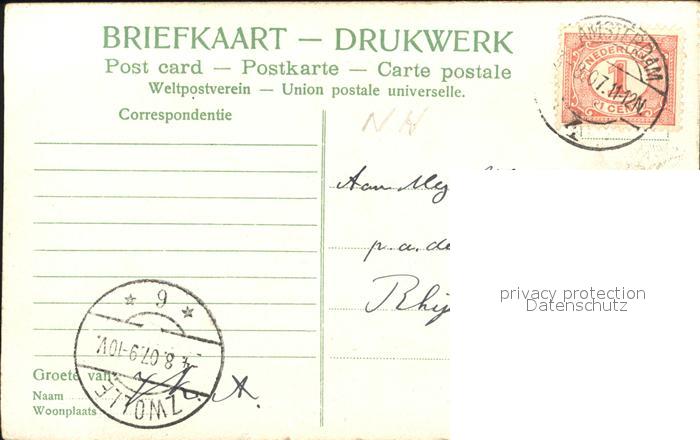 BRIEFKAART — DRUKWERK
Post card — Postkarte — Carte postale
Weltpostverein — Union postale universelle.
Correspondentie
AMSTERDAM
8.07.11-12N
NEDERLAND
1
1 CENT
N H
Aan Mej
p.a. de
Rhij
privacy protection
Datenschutz
9
4.8.07.9-10V.
ZWOLLE
Groete van
Naam
Woonplaats